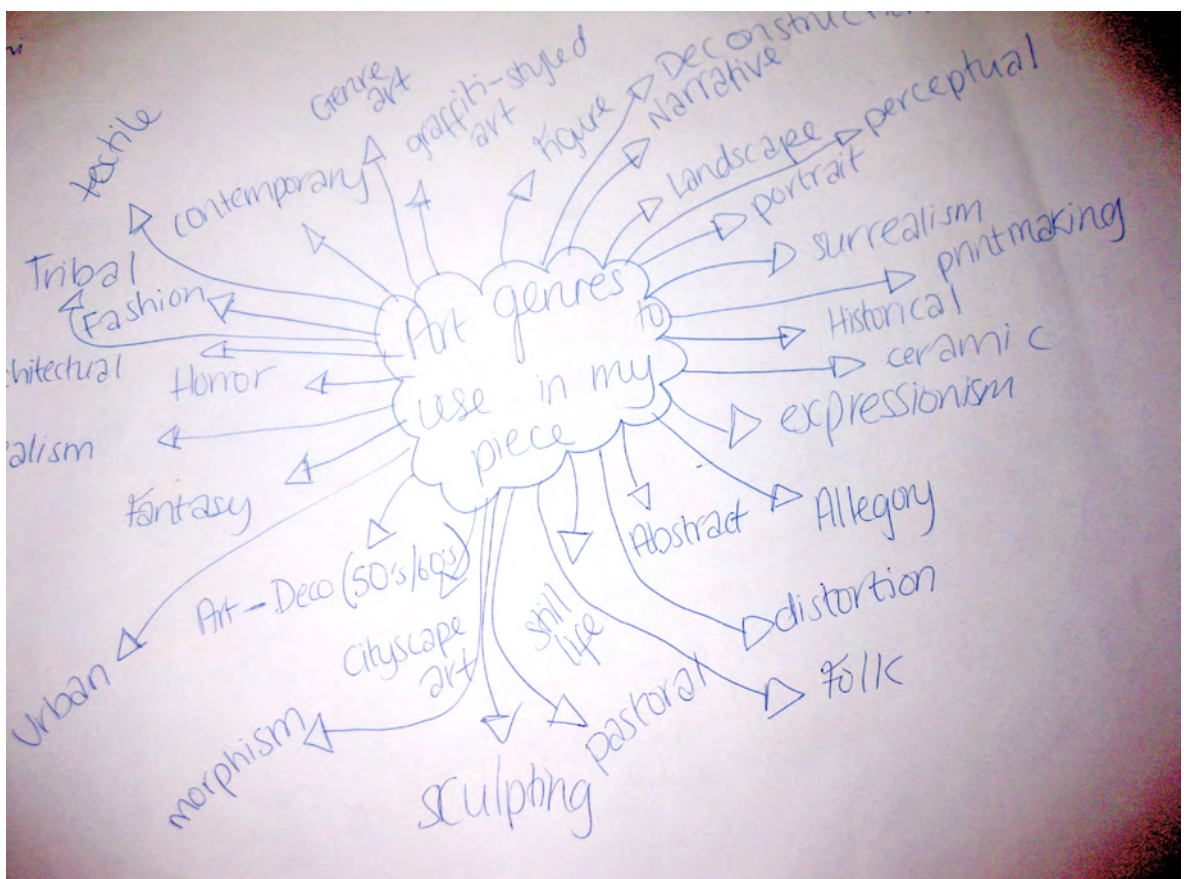 Art genres to
use in my
piece
textile
contemporary
Genre
art
graffiti-styled
art
Figure
Narrative
Landscape
perceptual
portrait
surrealism
printmaking
Historical
ceramic
expressionism
Allegory
Abstract
distortion
Folk
still
life
Pastoral
sculpting
morphism
cityscape
art
Art-Deco (50's/60's)
Urban
Fantasy
alism
Horror
hitectual
Fashion
Tribal